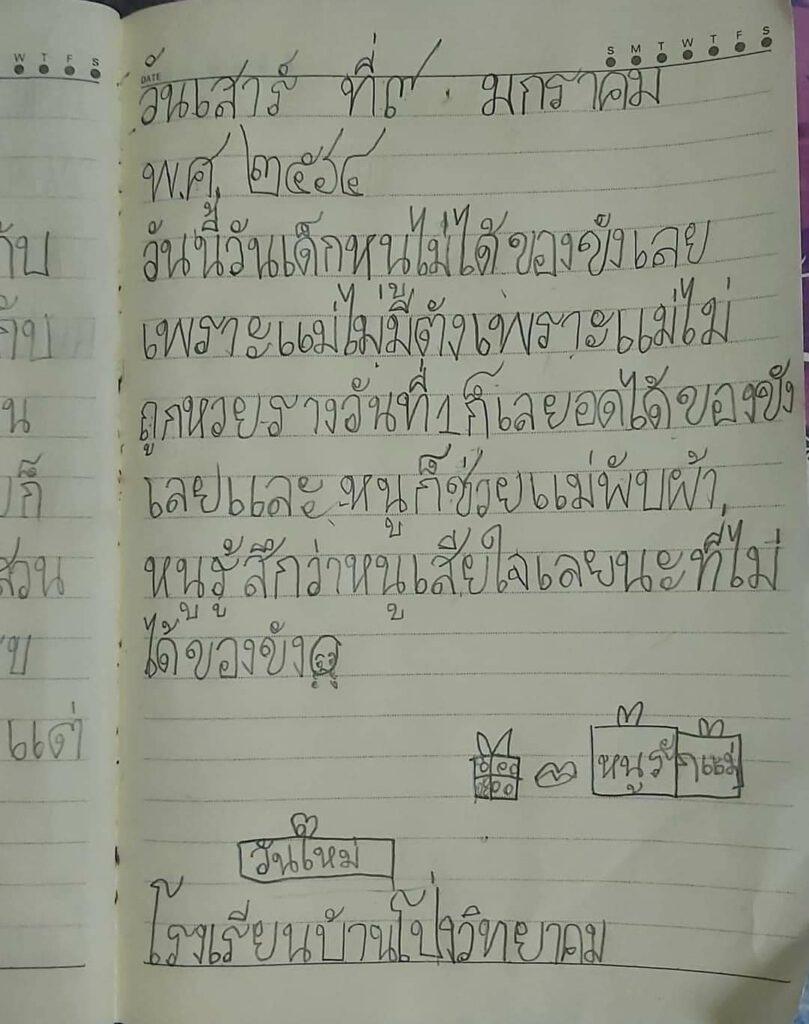 W T F S
S M T W T F S
DATE
วันเสาร์ ที่๙ มกราคม
พ.ศ. ๒๕๖๔
วันนี้วันเด็กหนูไม่ได้ของขังเลย
เพราะแม่ไม่มีตังเพราะแม่ไม่
ถูกหวยรางวันที่1ก็เลยอดได้ของขัง
เลยและหนูก็ช่วยแม่พับผ้า
หนูรู้สึกว่าหนูเสียใจเลยนะที่ไม่
ได้ของขัง
หนูรักแม่
วันใหม่
โรงเรียนบ้านโป่งวิทยาคม
น
ก็
สวน
แต่